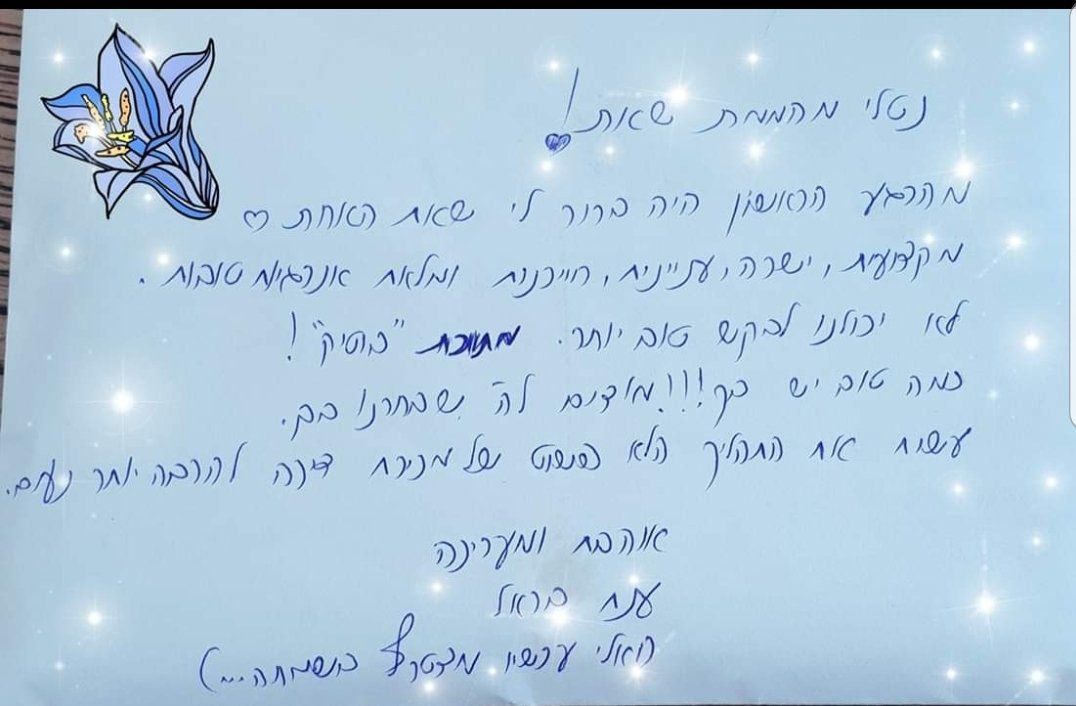 נטלי מהממת שאת!
מהרגע הראשון היה ברור לי שאת האחת ♡
מקצועית, ישרה, עניינית, חייכנית ומלאת אנרגיות טובות.
לא יכולנו לבקש טוב יותר. מתווכת "בוטיק"!
כמה טוב יש בך!!! מודים לה' שבחרנו בך.
עשית את התהליך הלא פשוט של מכירת דירה להרבה יותר נעים.
אוהבת ומעריכה
ענת בראל
רואלי עכשיו מצטרף בשמחה...)